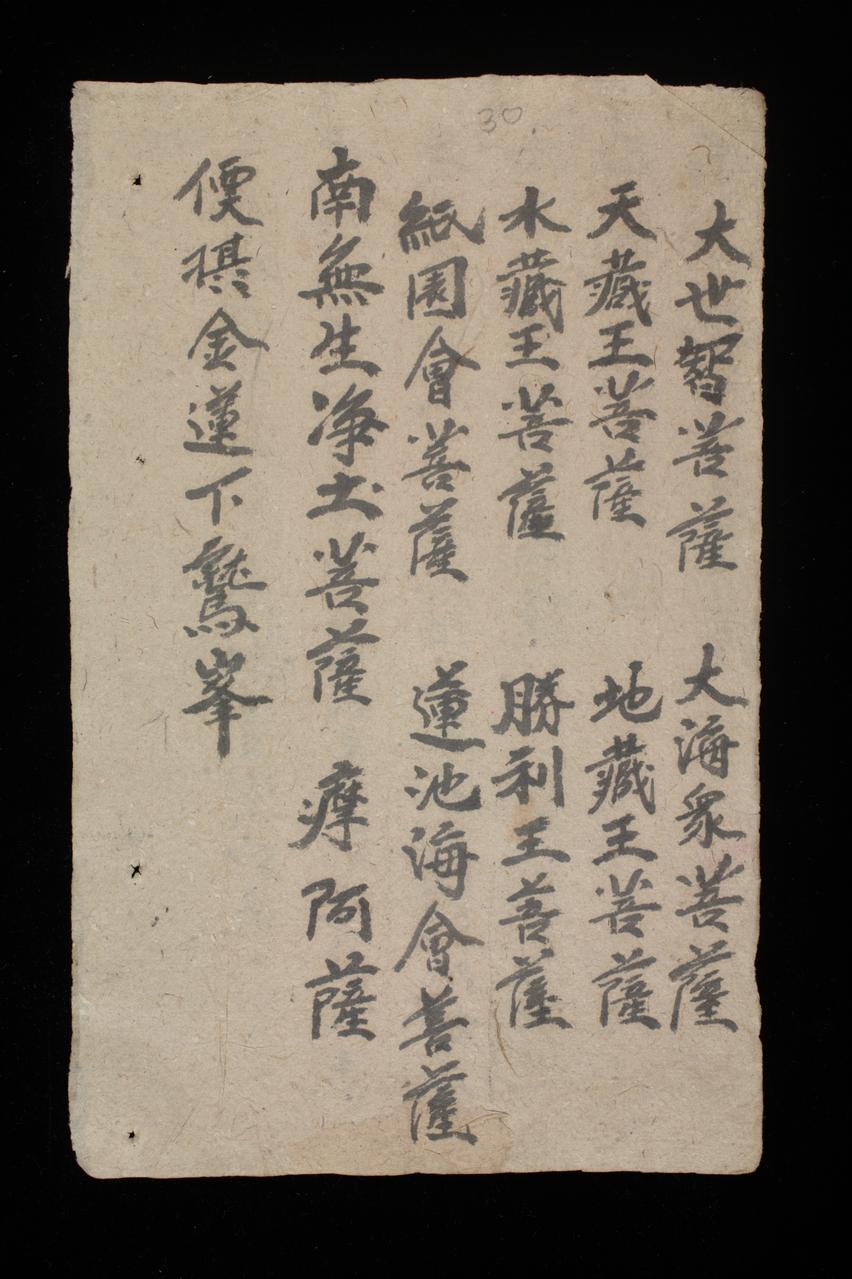 30
大世智菩薩 大海衆菩薩
天藏王菩薩 地藏王菩薩
水藏王菩薩 勝利王菩薩
紙園會菩薩 蓮池海會菩薩
南無生净土菩薩 摩阿薩
便 金蓮下鷲峯